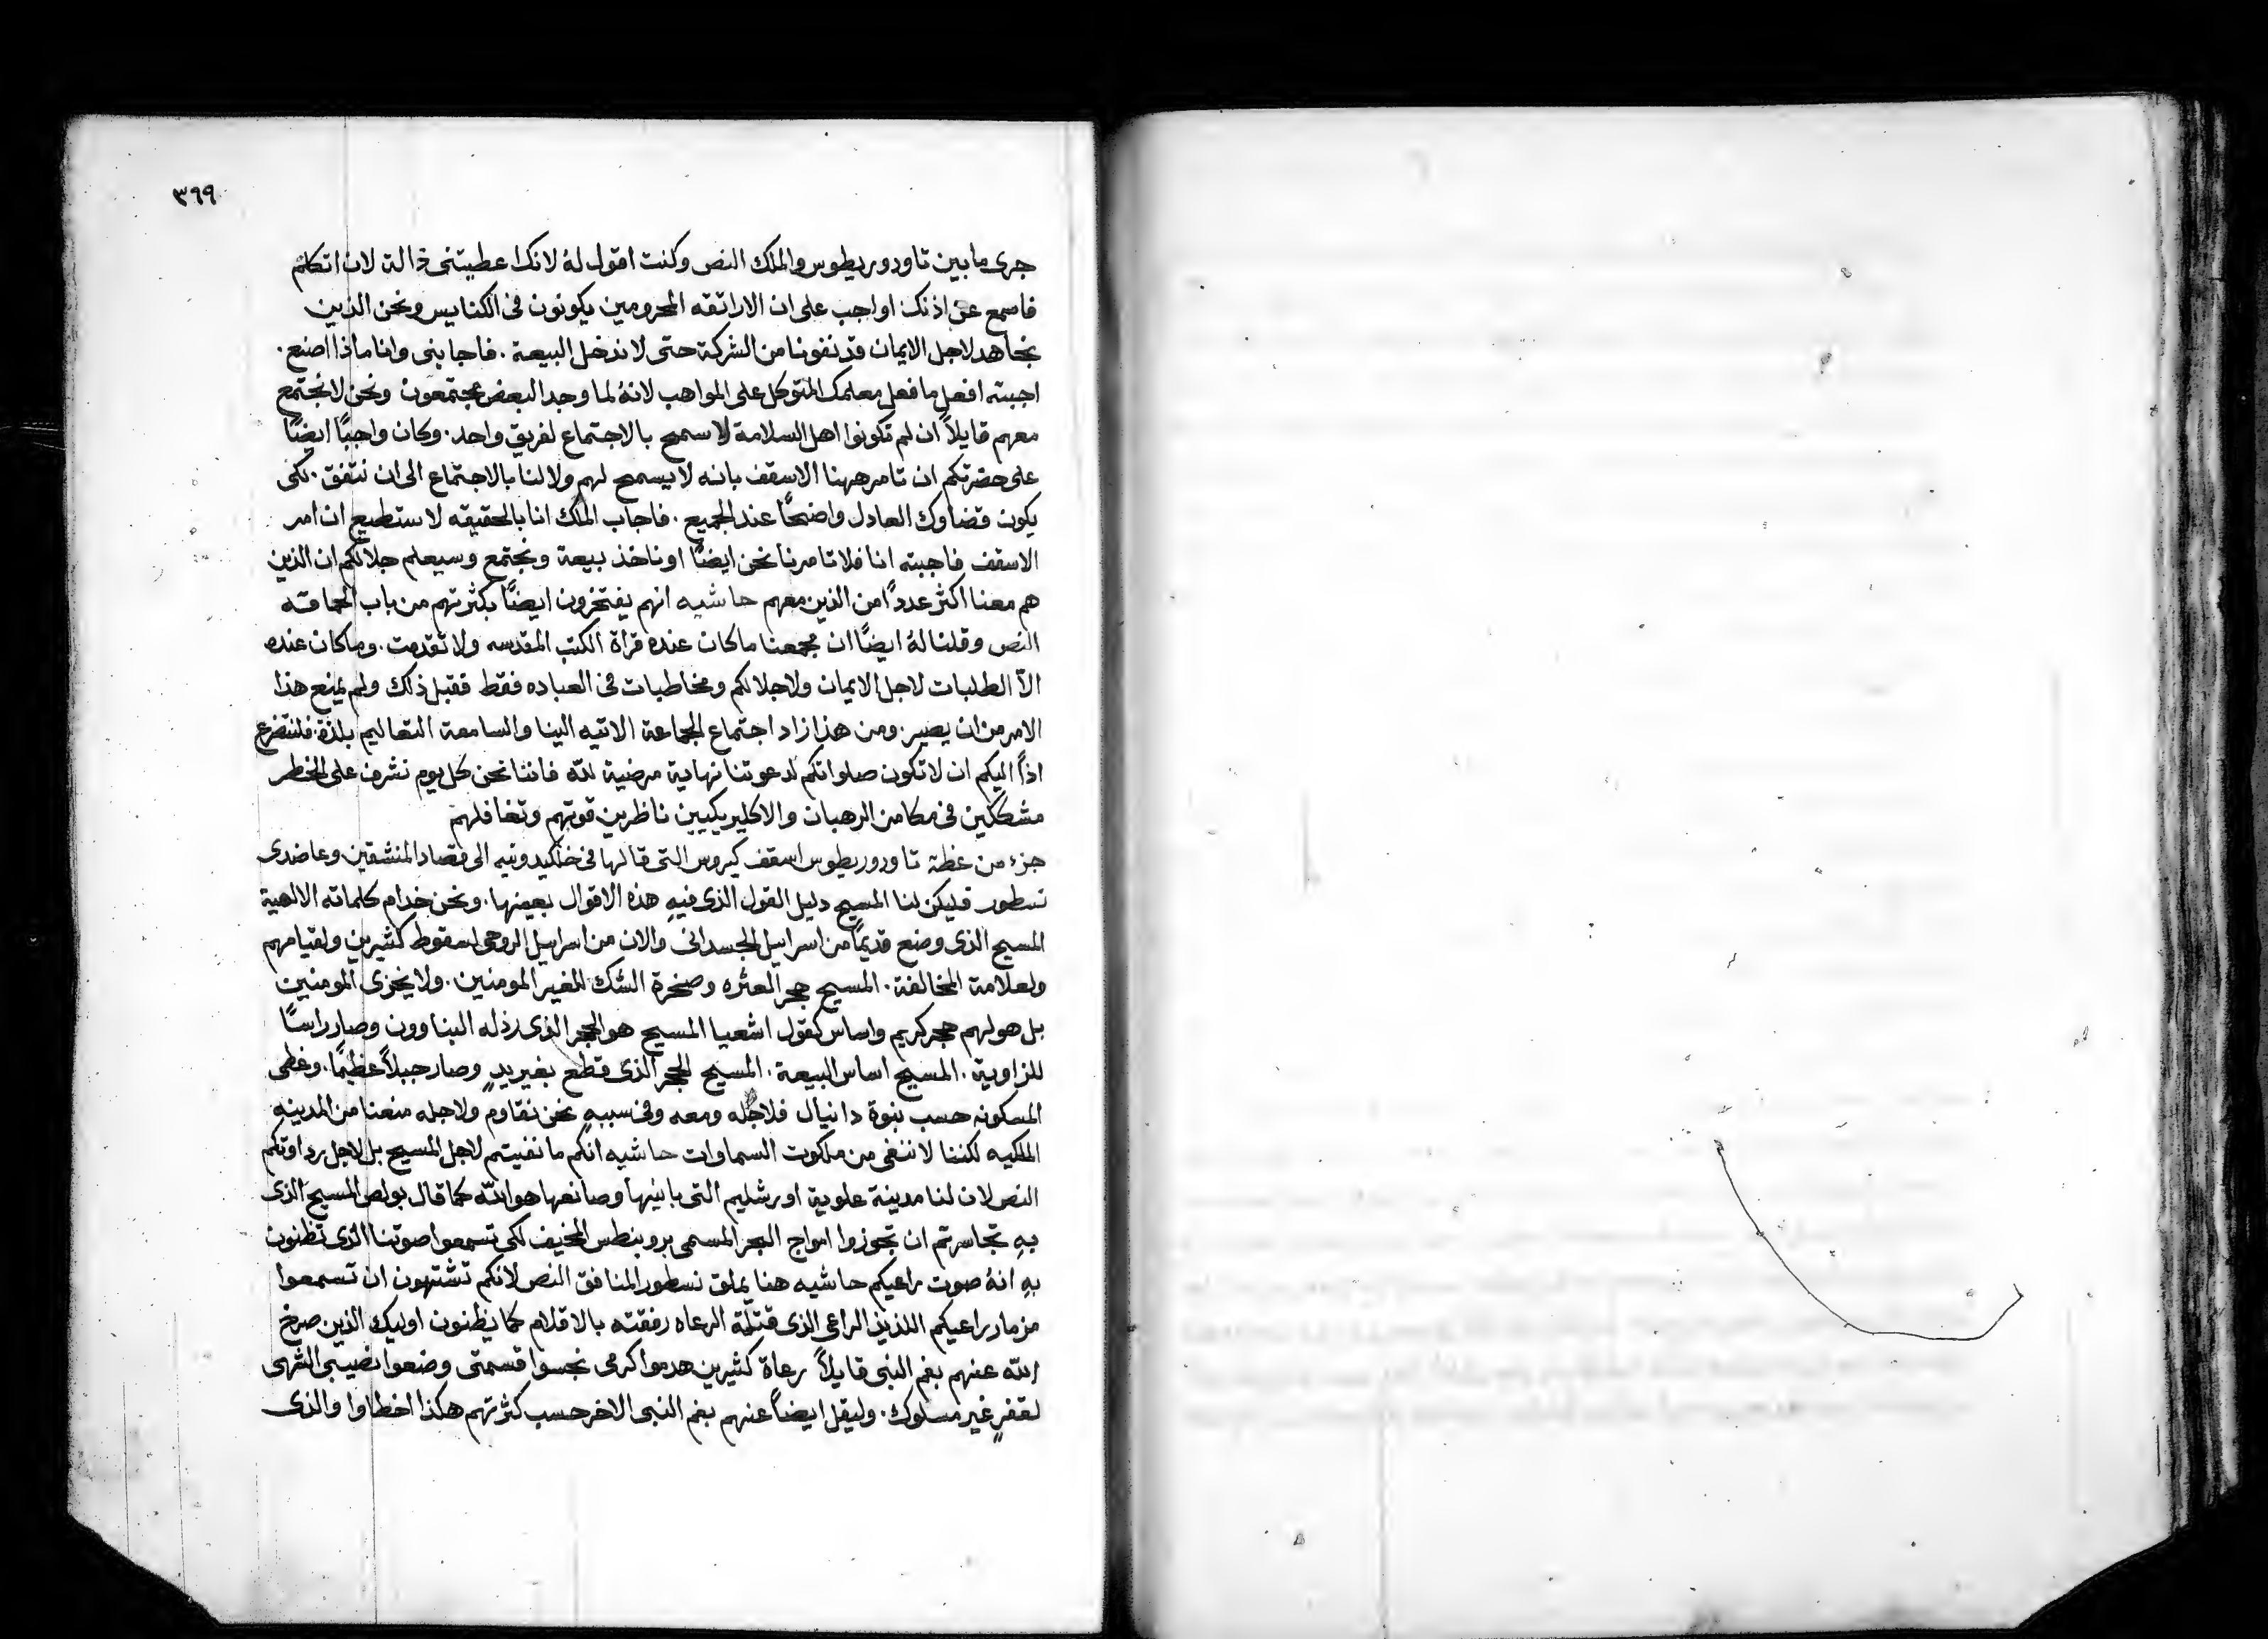 ٣٦٩
جرى ما بين تاودوريطوس والملك النص وكنت اقول له لانك اعطيتنى دالة لان اتكلم
فاسمع عن اذنك اواجب على ان الاراتقه المحرومين يكونون فى الكنايس ونحن الذين
نجاهد لاجل الايمان قد نفونا من الشركة حتى لا ندخل البيعة . فاجابنى وانا ماذا اصنع .
اجبته افعل ما فعل معلمك المتوكل على المواهب لانهُ لما وجد البعض مجتمعون ونحن لا نجتمع
معهم قايلاً ان لم تكونوا اهل السلامة لا سمح بالاجتماع لفريق واحد . وكان واجبًا ايضًا
على حضرتكم ان تامر ههنا الاسقف بانه لا يسمح لهم ولا لنا بالاجتماع الى ان نتفق . لكى
يكون قضاوك العادل واضحًا عند الجميع . فاجاب الملك انا بالحقيقه لا ستطيع ان امر
الاسقف فاجبته انا فلا تامرنا نحن ايضًا او ناخذ بيعة ونجتمع وسيعلم جلالكم ان الذين
هم معنا اكثر عددًا من الذين معهم حاشيه انهم يفتخرون ايضًا بكثرتهم من باب الحماقه
النص وقلنا لهُ ايضًا ان مجمعنا ماكان عنده قراة الكتب المقدسه ولا تقدمت . وماكان عنده
الّا الطلبات لاجل الايمان ولاجلالكم ومخاطبات فى العباده فقط فقبل ذلك ولم يمنع هذا
الامر من ان يصير . ومن هذا زاد اجتماع الجماعة الاتيه الينا والسامعة التعاليم بلذة . فلنتضرع
اذاً اليكم ان لا تكون صلواتكم لدعوتنا نهاية مرضية لله فاننا نحن كل يوم نشرف على الخطر
مشككين فى مكامن الرهبان والاكليريكيين ناظرين قوتهم وتغافلهم
جزء من عظة تاودوريطوس اسقف كيروس التى قالها فى خلكيدونيه الى قصاد المنشقين وعاضدى
نسطور فليكن لنا المسيح دليل القول الذى فيهِ هذه الاقوال بعينها . ونحن خدام كلماته الالهية
المسيح الذى وضع قديمًا من اسراييل الجسدانى والان من اسراييل الروحى لسقوط كثيرين ولقيامهم
ولعلامة المخالفة . المسيح حجر العثره وصخرة الشك للغير المومنين . ولا يخزى المومنين
بل هو لهم حجر كريم واساس كقول اشعيا المسيح هو الحجر الذى رذله البناوون وصار راسًا
للزاوية . المسيح اساس البيعة . المسيح الحجر الذى قطع بغير يدٍ وصار جبلاً عظيمًا . وغطى
المسكونه حسب بنوة دانيال فلاجله ومعه وفى سببهِ نحن نقاوم ولاجله منعنا من المدينه
الملكيه لكننا لا ننفى من ملكوت السماوات حاشيه انكم ما نفيتم لاجل المسيح بل لاجل رداوتكم
النص لان لنا مدينة علوية اورشليم التى بانيها وصانعها هو الله كما قال بولص المسيح الذى
بهِ تجاسرتم ان تجوزوا امواج البحر المسمى بروبنطس المخيف لكى تسمعوا صوتنا الذى تظنون
بهِ انهُ صوت راعيكم حاشيه هنا يملق نسطور المنافق النص لانكم تشتهون ان تسمعوا
مزمار راعيكم اللذيذ الراعى الذى قتلته الرعاه رفقته بالاقلام كما يظنون اوليك الذين صرخ
الله عنهم بفم النبى قايلاً رعاة كثيرين هدموا كرمى نجسوا قسمتى وضعوا نصيبى الشهى
لقفرٍ غير مسلوك . وليقل ايضاً عنهم بفم النبى الاخر حسب كثرتهم هكذا اخطاوا والذى